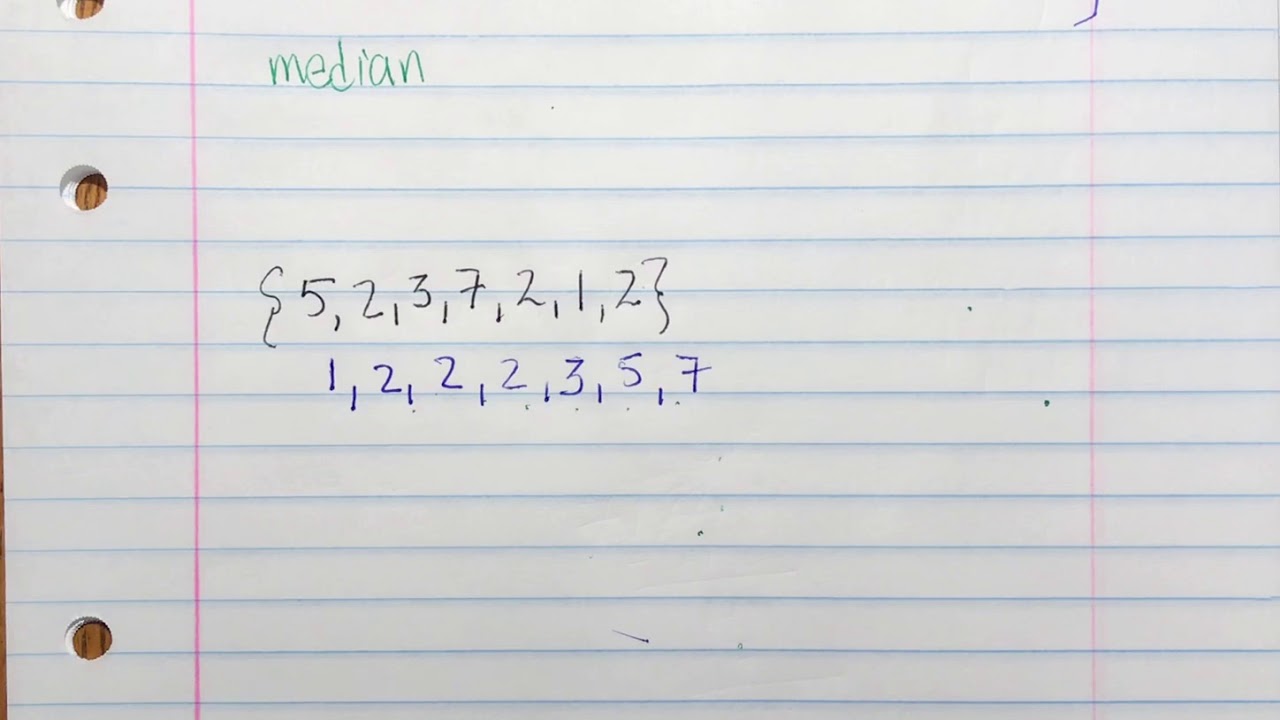 median
{5,2,3,7,2,1,2}
1,2,2,2,3,5,7